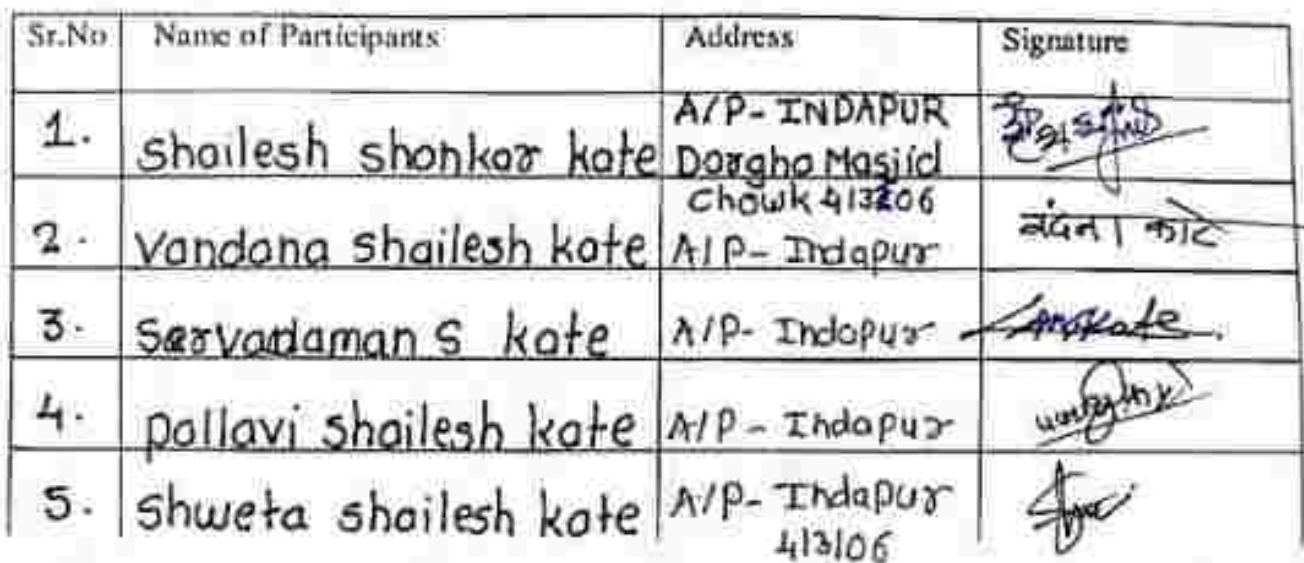 Sr.No Name of Participants Address Signature
1. Shailesh shankar kate A/P- INDAPUR
Dargha Masjid
Chowk 413206
2. Vandana shailesh kate A/P- Indapur वंदना काटे
3. Sarvadaman S kate A/P- Indapur
4. pallavi shailesh kate A/P- Indapur
5. Shweta shailesh kate A/P- Indapur
413106